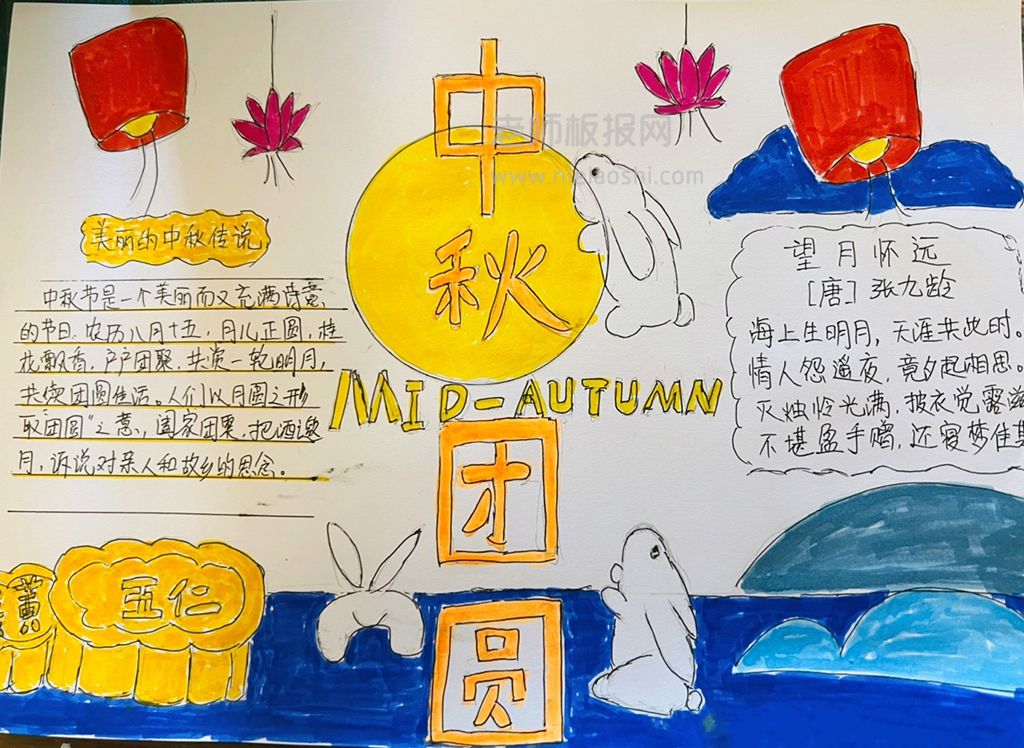 中
秋
MID-AUTUMN
团
圆
美丽的中秋传说
中秋节是一个美丽而又充满诗意
的节日。农历八月十五，月儿正圆，桂
花飘香，户户团聚，共赏一轮明月，
共续团圆佳话。人们以月圆之形
取“团圆”之意，阖家团栗，把酒邀
月，诉说对亲人和故乡的思念。
望月怀远
[唐] 张九龄
海上生明月，天涯共此时。
情人怨遥夜，竟夕起相思。
灭烛怜光满，披衣觉露滋
不堪盈手赠，还寝梦佳期
五仁
老师板报网
www.nielaoshi.com